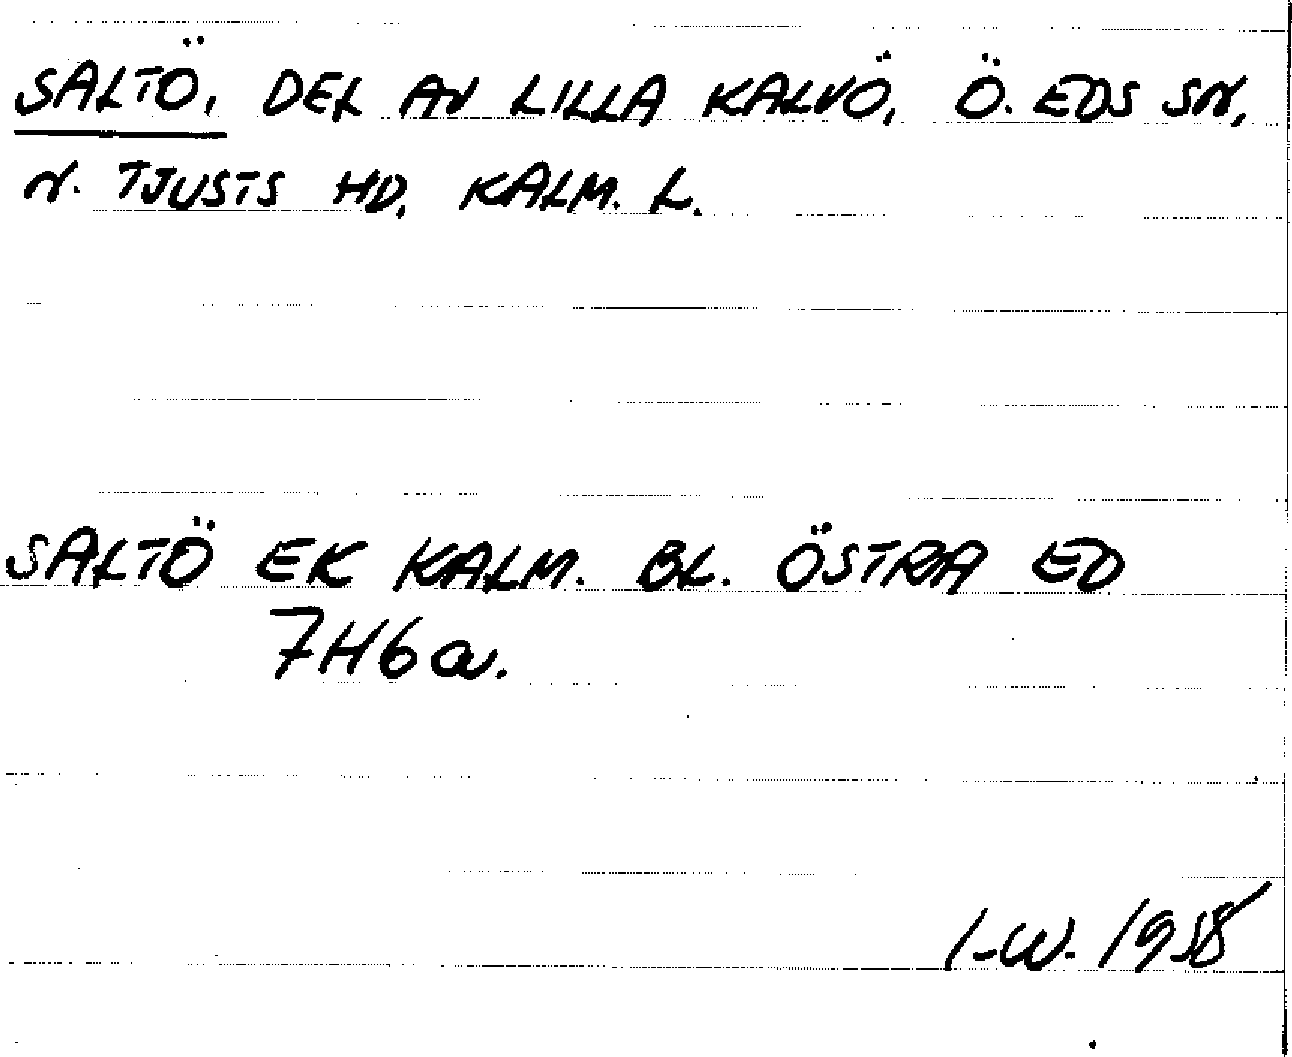 SALTÖ, DEL AV LILLA KALVÖ, Ö. EDS SN,
N. TJUSTS HD, KALM. L.
SALTÖ EK KALM. BL. ÖSTRA ED
7H6a.
I-W. 1958